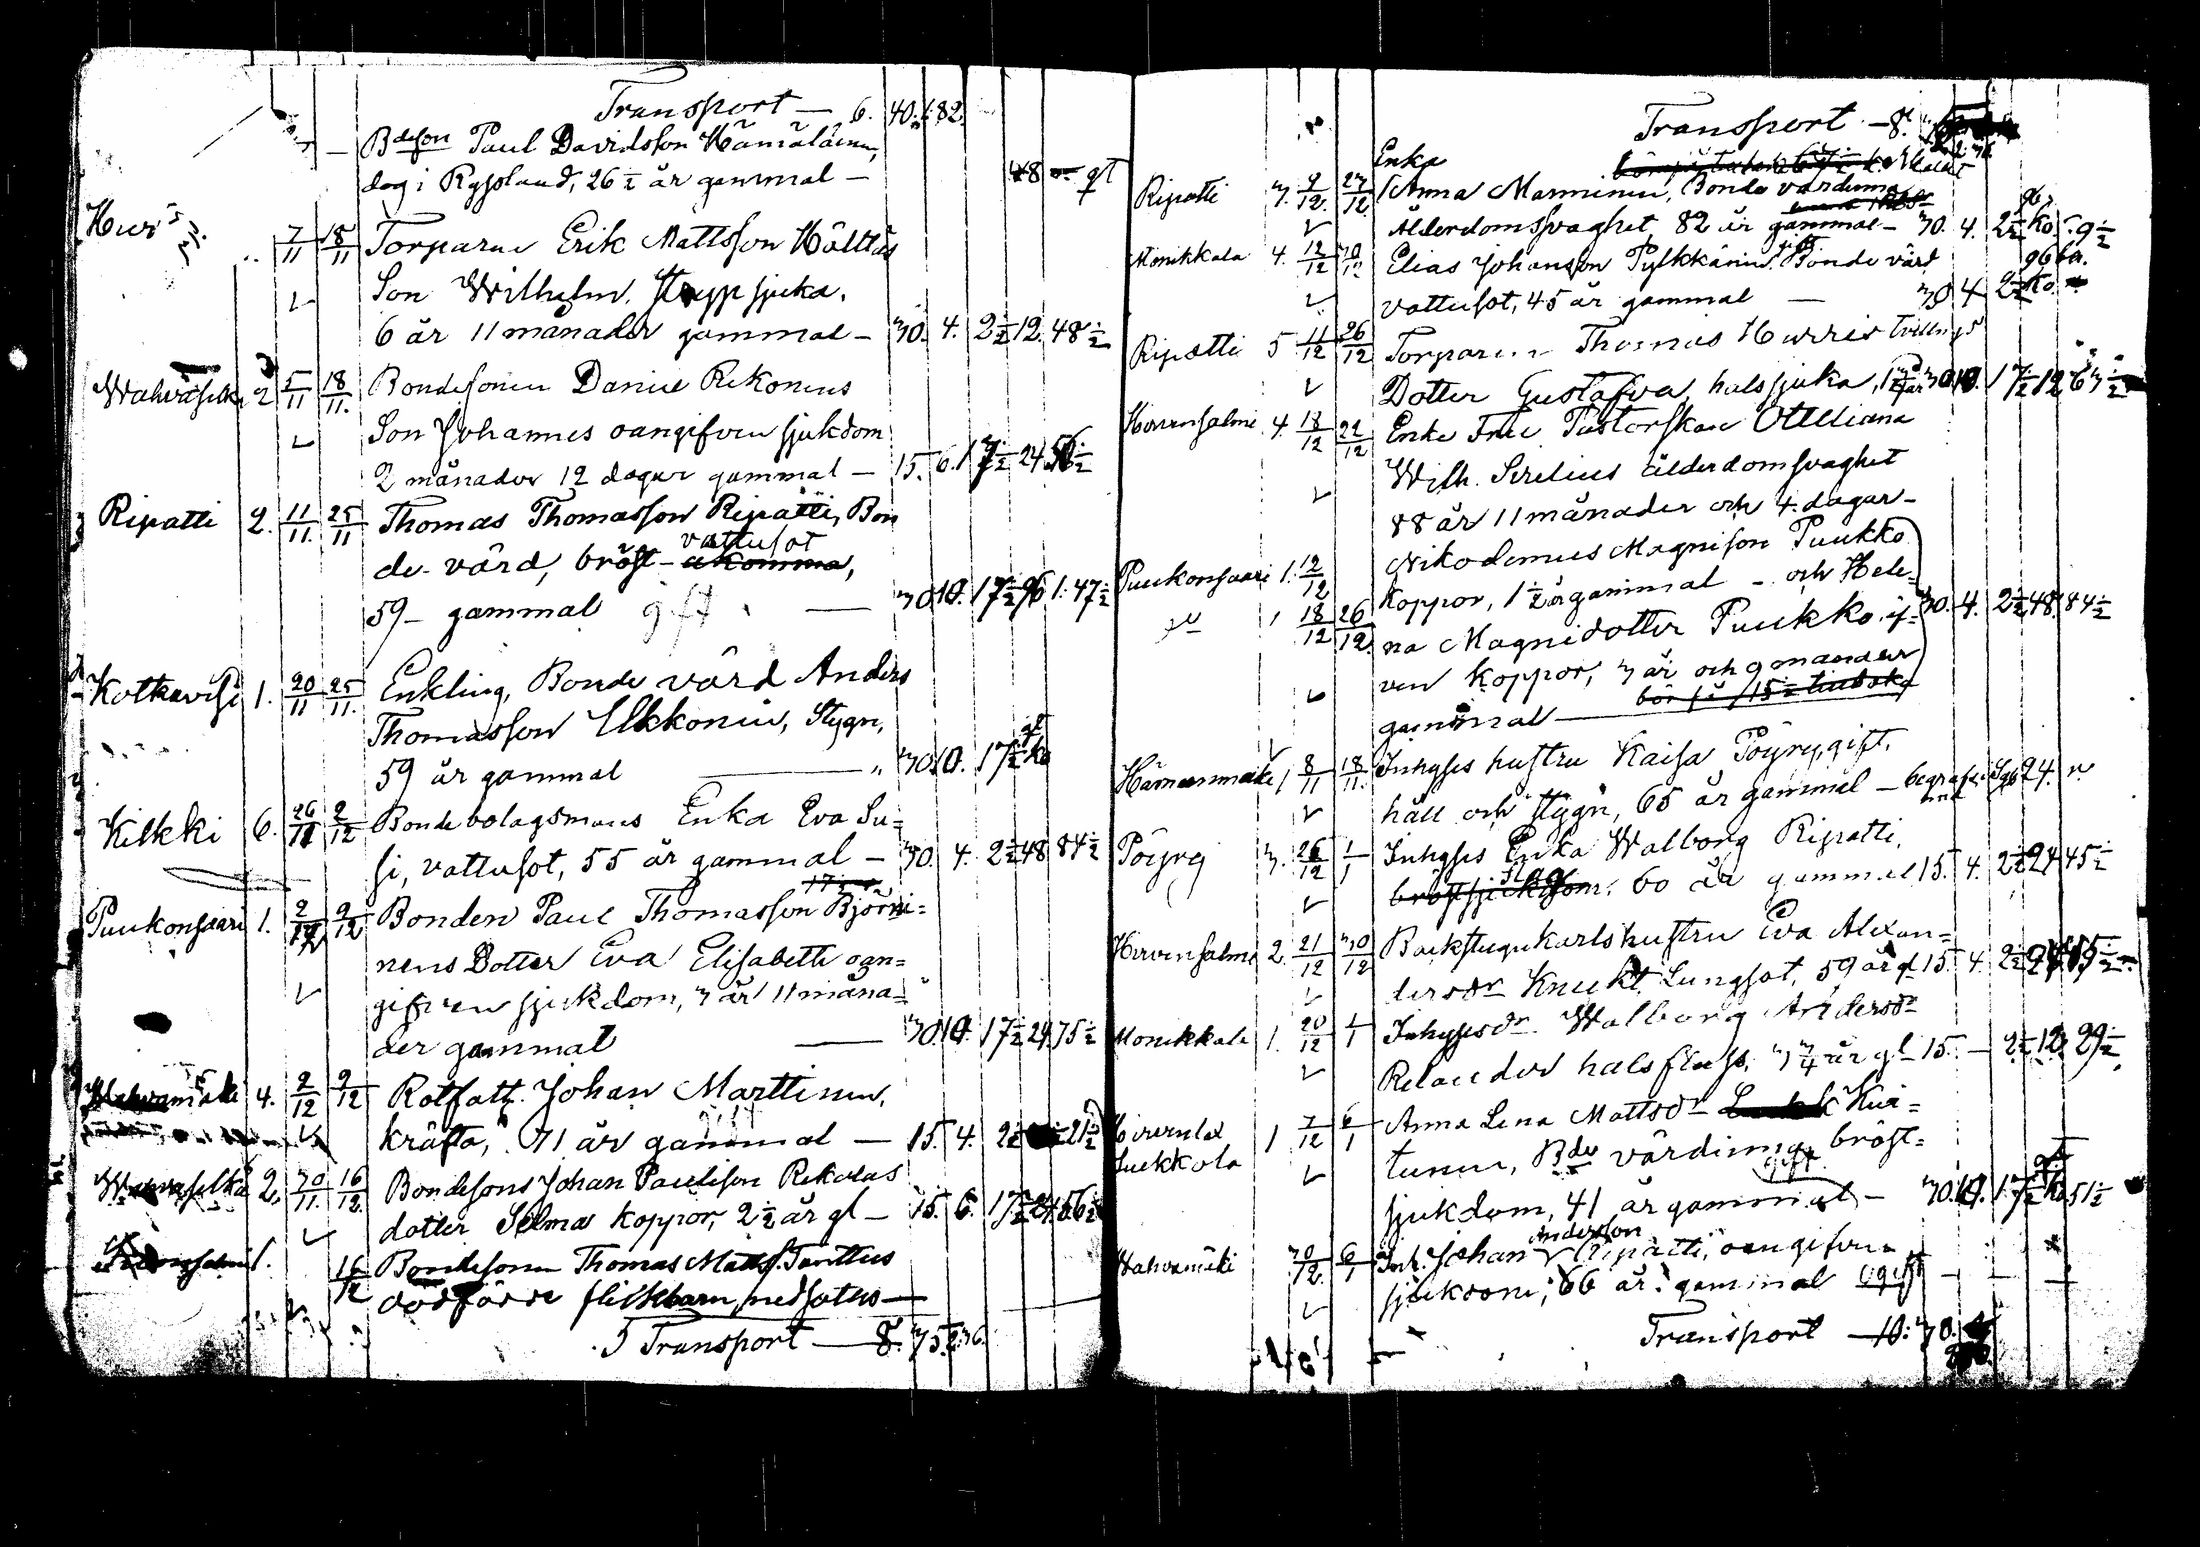 Transport — 6. 40. 1.82.
— Bdeson Paul Davidsson Hämäläinen,
dog i Ryssland, 26½ år gammal — 48
7/11 18/11 Torparen Erik Mattsson Hölttäs
Son Wilhelm, strypsjuka,
6 år 11 månader gammal — 30. 4. 2½ 12. 48½
Wahvaselkä 2 5/11 18/11. Bondesonen Daniel Rekonens
Son Johannes oangifven sjukdom
2 månader 12 dagar gammal — 15. 6. 17½ 24. 56½
Ripatti 2. 11/11. 25/11 Thomas Thomasson Ripatti, Bon
de värd, bröst-åkomma, vattusot
59 — gammal gift — 30 10. 17½ 96 1.47½
Kotkavesi 1. 20/11 25/11. Enkling, Bonde värd Anders
Thomasson Ukkonen, Stygn,
59 år gammal — " 30 10. 17½ ko
Kilkki 6. 26/11 2/12 Bonde bolagsmans Enka Eva Su=
si, vattusot, 55 år gammal — 30. 4. 2½ 48 84½
Puukonsaari 1. 2/12 9/12 Bonden Paul Thomasson Björni=
nens Dotter Eva Elisabeth oan=
gifven sjukdom, 3 år 11 måna=
der gammal — 30 10. 17½ 24. 75½
4. 2/12 9/12 Rotfatt. Johan Marttinen,
kräfta, 71 år gammal — 15. 4. 2½ 21½
2. 30/11. 16/12 Bondesons Johan Paulison Rekolas
dotter Selma koppor, 2½ år gl — 15. 6. 17½ 24. 56½
16/12 Bondesonen Thomas Matts. Tanttus
dödfödde flickbarn nedsattes —
Transport — 8. 35. 2.36.
Transport — 8.
Enka
Ripatti 3. 9/12. 27/12 Anna Manninen, Bonde värdinna
Ålderdomsvaghet, 82 år gammal — 30. 4. 2½ ko
Monikkala 4. 12/12 30/12 Elias Johansson Pylkkänen, Bonde värd
vattusot, 45 år gammal — 30 4 2½ ko.
Ripatti 5 11/12 26/12 Torparen Thomas Hurris tvillings
Dotter Gustafva, halssjuka, 30 10. 17½ 12
Hirvensalmi 4. 18/12 22/12 Enke Fru Pastorskan Ottiliana
Wilh. Sirelius ålderdomsvaghet
88 år 11 månader och 4 dagar —
Puukonsaari 1. 12/12 Nikodemus Magnison Puukko
koppor, 1½ år gammal — och Hele=
1 18/12 26/12. na Magnidotter Puukko, äf= 30. 4. 2½ 48. 84½
ven koppor, 3 år och 9 månader
gammal —
Hämeenmäki 1 8/11 18/11. Inhyses hustru Kaisa Pöyry, gift,
håll och stygn, 65 år gammal — 24.
Pöyry 3. 26/12 1/1 Inhyses Enka Walborg Ripatti,
bröstsjukdom, 60 år gammal 15. 4. 2½ 24 45½
Hirvensalmi 2. 21/12 30/12 Backstugukarls hustru Eva Alexan=
dersdr Knuckt Lungsot, 59 år gl 15. 4. 2½
Monikkala 1. 20/12 1/1 Inhysesdr. Walborg Andersdr
Relander halsfluss, 3¾ år gl — 15. — 2½ 12. 29½
Sukkola 1 7/12 6/1 Anna Lena Mattsdr Kui=
tunen, Bde värdinna, bröst=
sjukdom, 41 år gammal — gift 30. 10. 17½ ko 51½
Wahvamäki 30/12. 6/1 Inh. Johan Andersson Ripatti, oangifven
sjukdom, 66 år gammal ogift — —
Transport — 10: 30.